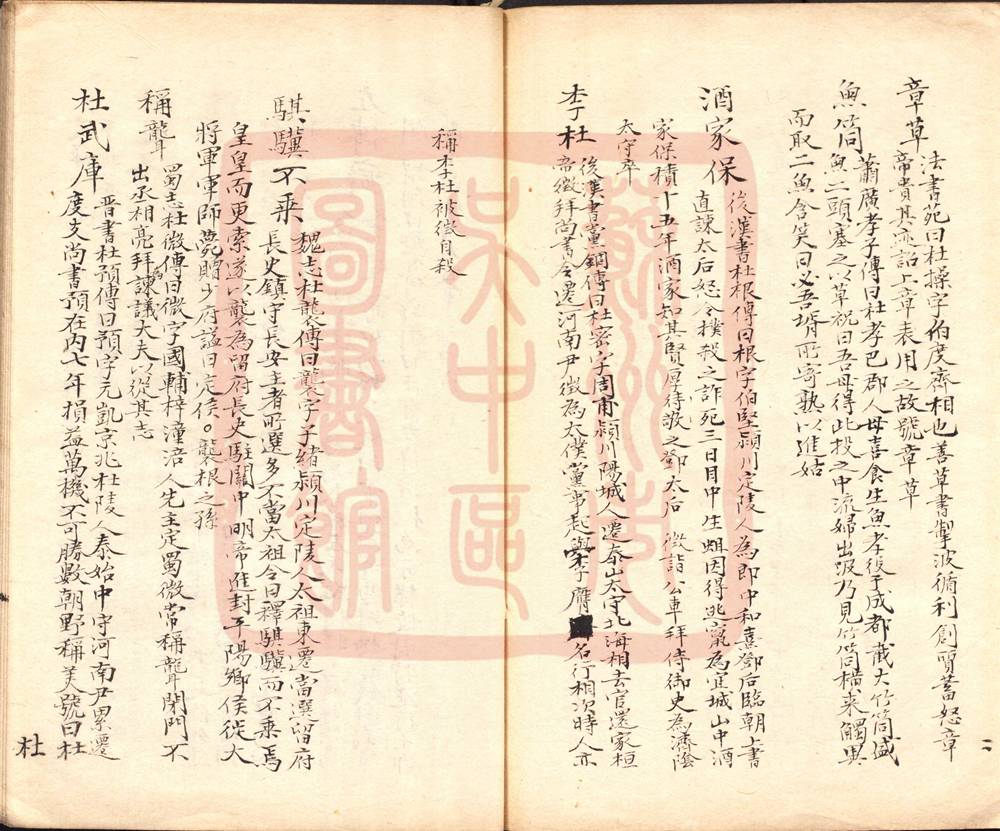 章草 法書苑曰杜操字伯度齊相也善草書掣波循利創質蓄怒章
帝貴其迹詔上章表用之故號章草
魚筒 蕭廣孝子傳曰杜孝巴郡人母喜食生魚孝後于成都截大竹筒盛
魚二頭塞之以草祝曰吾母得此投之中流婦出汲乃見竹筒橫來觸異
而取二魚含笑曰必吾壻所寄熟以進姑
酒家保 後漢書杜根傳曰根字伯堅潁川定陵人為郎中和熹鄧后臨朝上書
直諫太后怒令撲殺之詐死三日目中生蛆因得逃竄為宜城山中酒
家保積十五年酒家知其賢厚待敬之鄧太后 徵詣公車拜侍御史為濟陰
太守卒
李杜 後漢書黨錮傳曰杜密字周甫潁川陽城人遷泰山太守北海相去官還家桓
帝徵拜尚書令遷河南尹徵為太僕黨事起與李膺 名行相次時人亦
稱李杜被徵自殺
騏驥不乘 魏志杜襲傳曰襲字子緒潁川定陵人太祖東還當選留府
長史鎮守長安主者所選多不當太祖令曰釋騏驥而不乘焉
皇皇而更索遂以襲為留府長史駐關中明帝進封平陽鄉侯從大
將軍軍師薨贈少府諡曰定侯。襲根之孫
稱聾 蜀志杜微傳曰微字國輔梓潼涪人先主定蜀微常稱聾閉門不
出丞相亮拜諫議大夫以從其志
杜武庫 晋書杜預傳曰預字元凱京兆杜陵人泰始中守河南尹累遷
度支尚書預在內七年損益萬機不可勝數朝野稱美號曰杜
杜
二
蘇州市
吳中區
圖書館